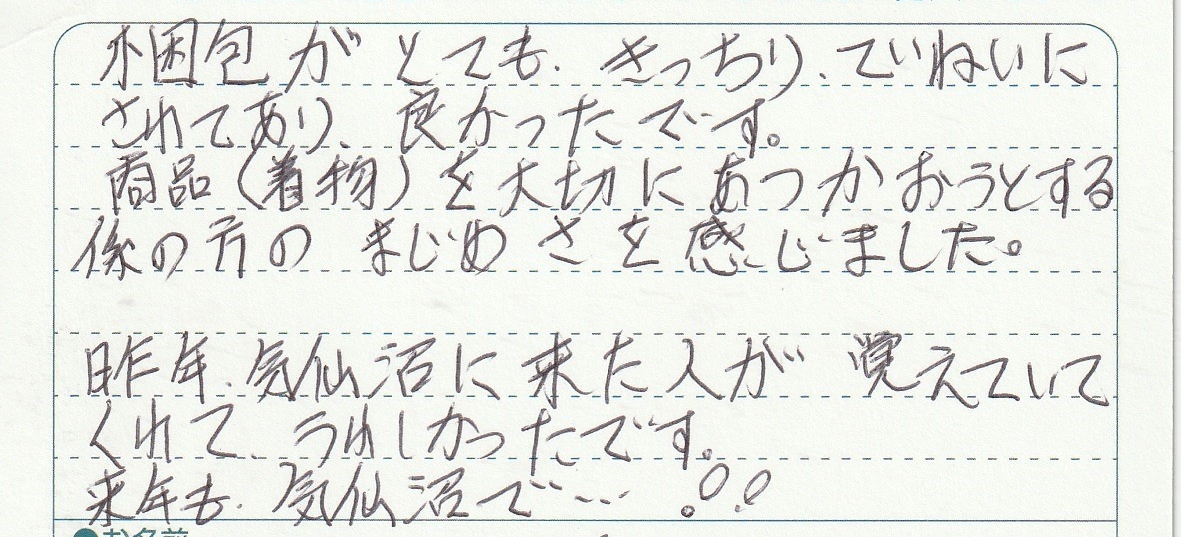 梱包がとても、きっちり、ていねいに
されてあり、良かったです。
商品(着物)を大切にあつかおうとする
係の方のまじめさを感じました。
昨年、気仙沼に来た人が覚えていて
くれて、うれしかったです。
来年も、気仙沼で…。!!
●お名前